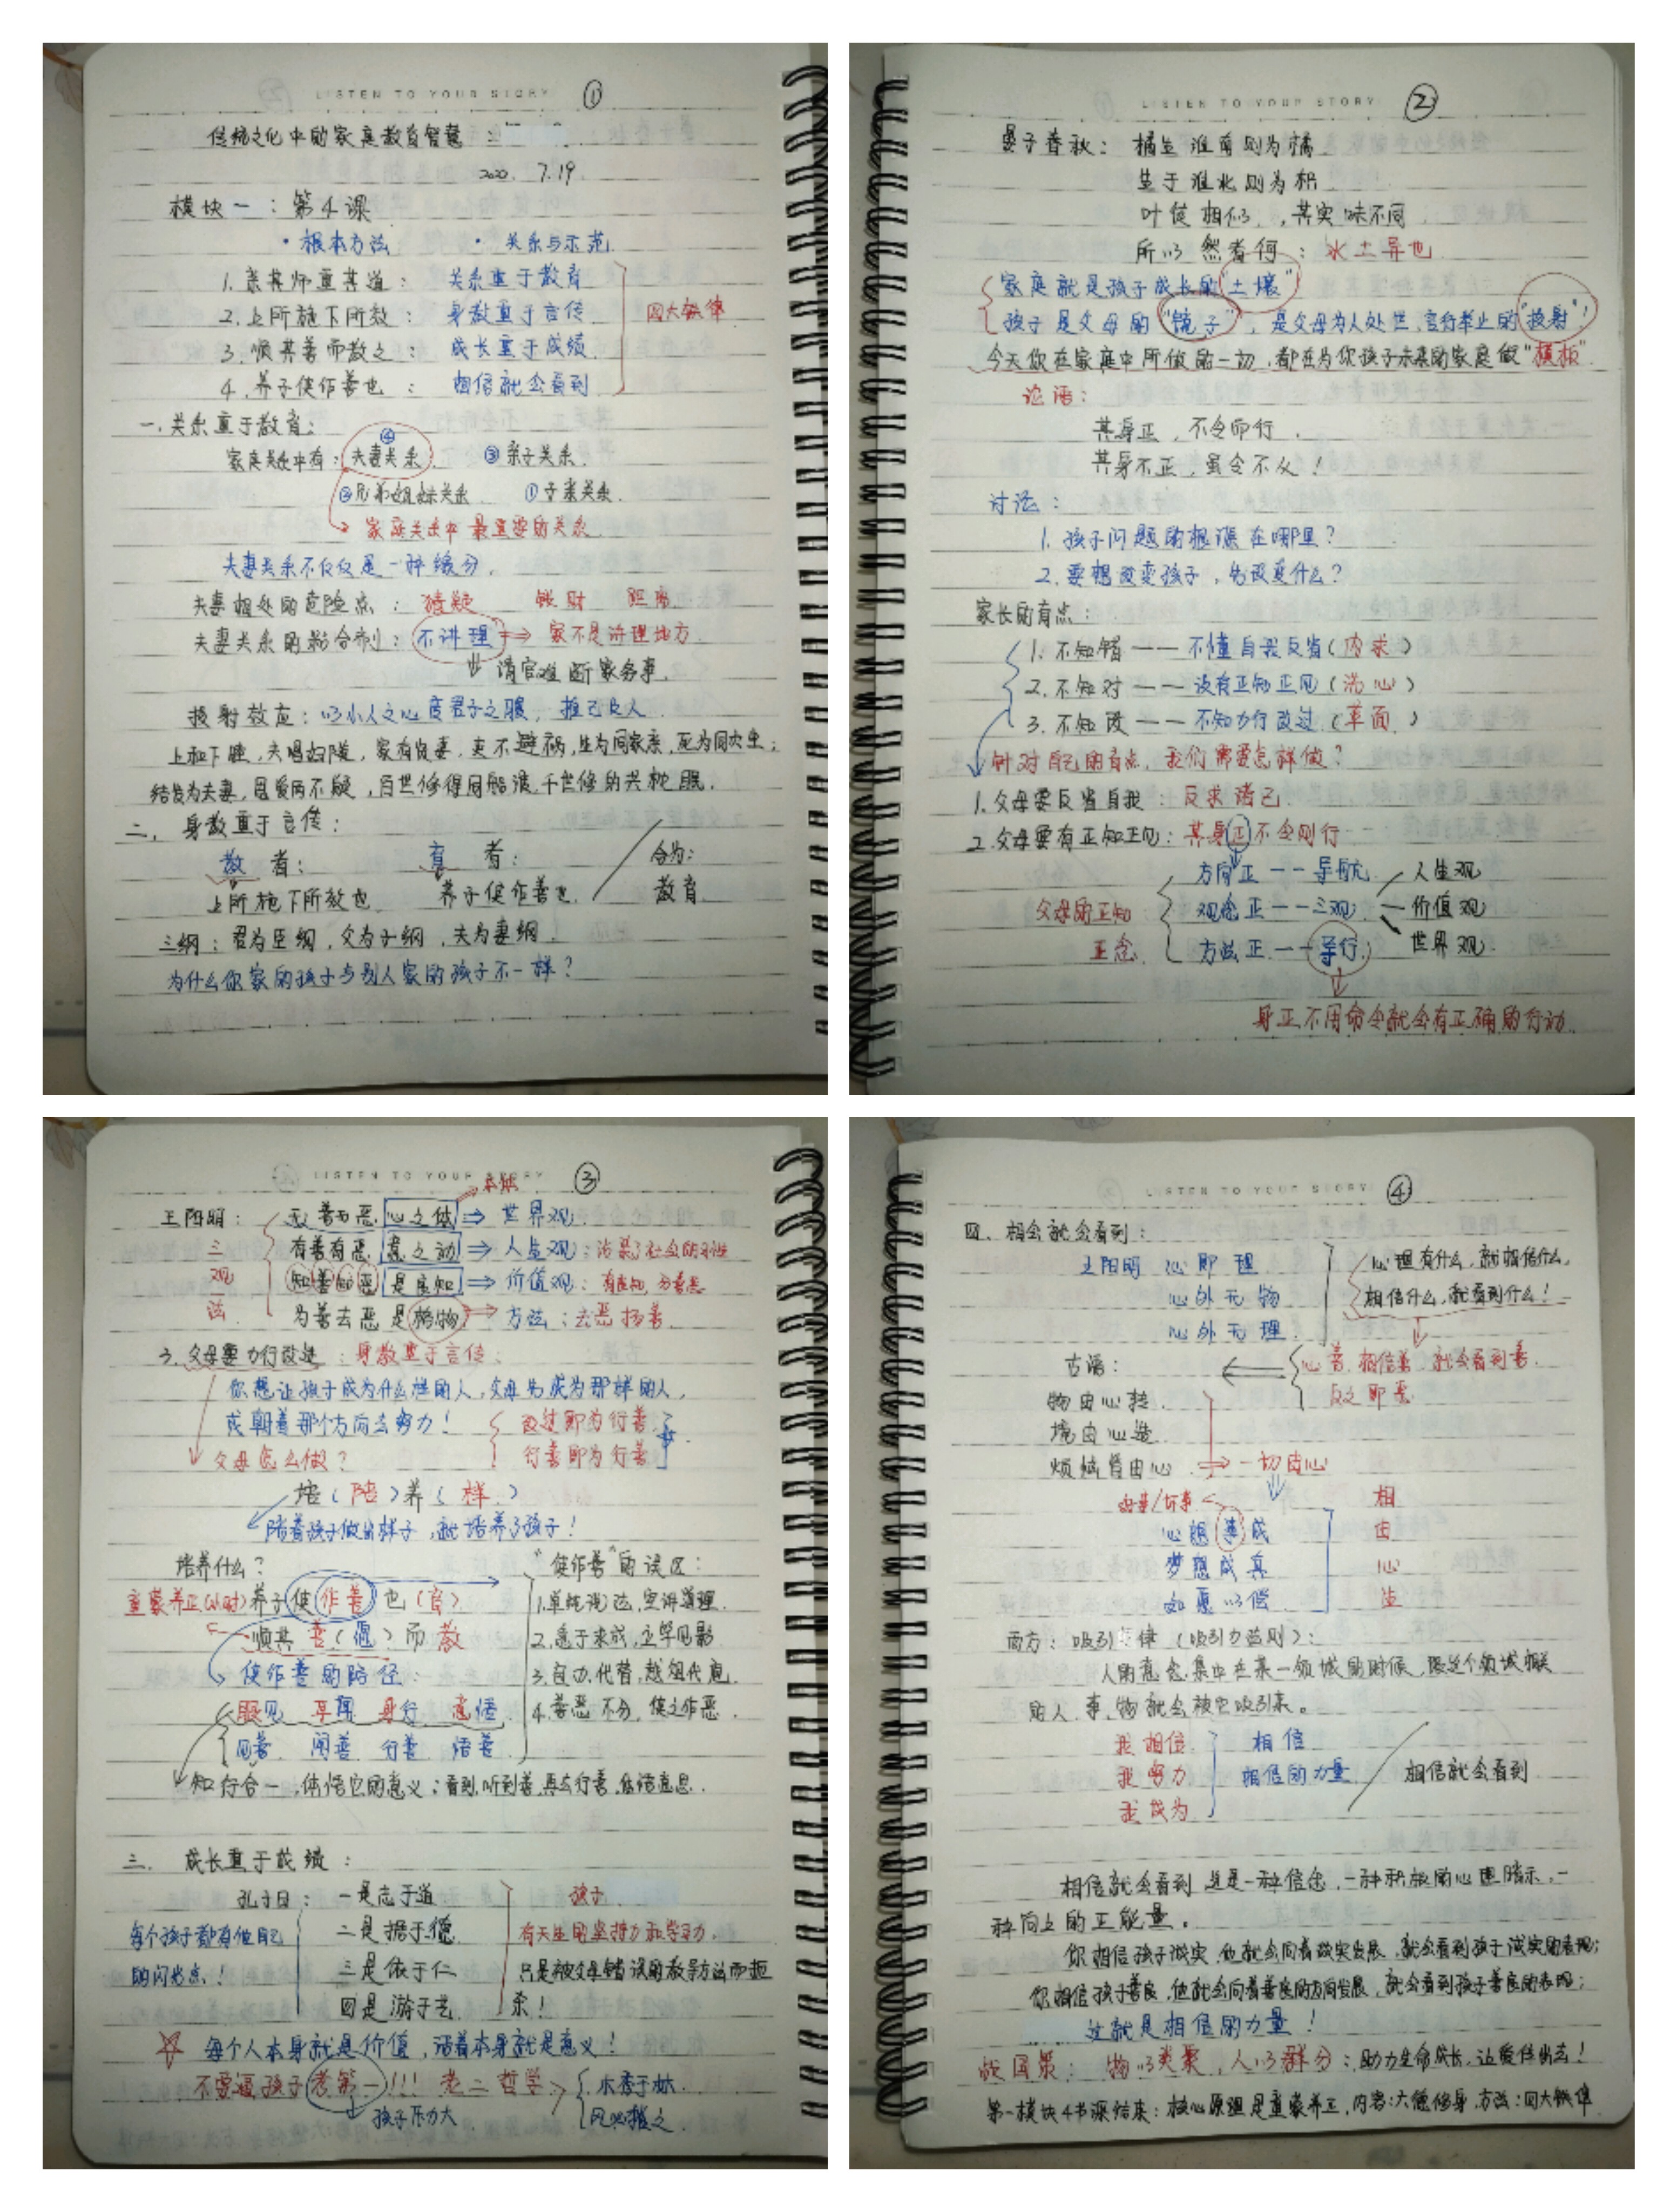 LISTEN TO YOUR STORY ①
传统文化中的家庭教育智慧：
2020. 7.19
模块一：第4课
·根本方法 · 关系与示范
1.亲其师重其道：关系重于教育
2.上所施下所效：身教重于言传
3.顺其善而教之：成长重于成绩
4.养子使作善也：相信就会看到
四大铁律
一.关系重于教育：
家庭关系中有：④夫妻关系 ③亲子关系
②兄弟姐妹关系 ①子亲关系.
家庭关系中最重要的关系
夫妻关系不仅仅是一种缘分.
夫妻相处的危险点：猜疑 钱财 距离
夫妻关系的黏合剂：不讲理⇒家不是讲理地方
⇓清官难断家务事.
投射效应：以小人之心度君子之腹，推己及人
上和下睦，夫唱妇随，家有良妻，夫不避祸，生为同家亲，死为同穴尘；
结发为夫妻，恩爱两不疑，百世修得同船渡，千世修的共枕眠.
二．身教重于言传：
教 者： 育 者： 合为：
上所施下所效也 养子使作善也. 教育
三纲：君为臣纲，父为子纲，夫为妻纲.
为什么你家的孩子与别人家的孩子不一样？
LISTEN TO YOUR STORY ②
晏子春秋：橘生淮南则为橘
生于淮北则为枳
叶徒相似，其实味不同
所以然者何：水土异也
家庭就是孩子成长的“土壤”
孩子是父母的“镜子”，是父母为人处世，言行举止的“投射”！
今天你在家庭中所做的一切，都在为你孩子未来的家庭做“模板”.
论语：
其身正，不令而行.
其身不正，虽令不从！
讨论：
1.孩子问题的根源在哪里？
2.要想改变孩子，先改变什么？
家长的盲点：
1.不知错——不懂自我反省（内求）
2.不知对——没有正知正见（洗心）
3.不知改——不知力行改过（革面）
针对自己的盲点，我们需要怎样做？
1.父母要反省自我：反求诸己
2.父母要有正知正见：其身正不令则行
方向正——导航 人生观
父母的正知 观念正——三观 价值观
正念 方法正——导行 世界观
身正不用命令就会有正确的行动.
LISTEN TO YOUR STORY ③
本体
王阳明：无善无恶心之体⇒世界观
三 有善有恶意之动⇒人生观：沾染了社会的习性
观 知善知恶是良知⇒价值观：有良知，为善恶
一法 为善去恶是格物⇒方法：去恶扬善
3.父母要力行改过：身教重于言传：
你想让孩子成为什么样的人，父母先成为那样的人，
或朝着那个方向去努力！ 改过即为行善
父母怎么做？ 行善即为行善
培（陪）养（样）
陪着孩子做出样子，就培养了孩子！
培养什么？ “使作善”的误区：
童蒙养正(从时)养子使作善也（育） 1.单纯说法，空讲道理.
顺其善（偶）而教 2.急于求成，立竿见影
使作善的路径： 3.自办代替，越俎代庖
眼见 耳闻 身行 意悟 4.善恶不分，使之作恶.
见善 闻善 行善 悟善
知行合一，体悟它的意义；看到，听到善，再去行善，体悟意思.
三．成长重于成绩：
孔子曰：一是志于道 孩子
每个孩子都有他自己 二是据于德 有天生的坚持力和学习力，
的闪光点！ 三是依于仁 只是被父母错误的教导方法而扼
四是游于艺 杀！
☆每个人本身就是价值，活着本身就是意义！
不要逼孩子考第一!!! 老二哲学 木秀于林
孩子压力大 风必摧之
LISTEN TO YOUR STORY ④
四．相会就会看到：
王阳明 心即理 心理有什么，就相信什么，
心外无物 相信什么，就看到什么！
心外无理
古语： 心善，相信善，就会看到善.
物由心转. 反之即恶
境由心造
烦恼皆由心⇒一切由心
好事/坏事 相
心想事成 由
梦想成真 心
如愿以偿 生
西方：吸引定律（吸引力法则）：
人的意念集中在某一领域的时候，跟这个领域相关
的人、事、物就会被它吸引来。
我相信 相信
我努力 相信的力量 相信就会看到
我成为
相信就会看到 这是一种信念，一种积极的心理暗示，一
种向上的正能量。
你相信孩子诚实，他就会向着诚实发展，就会看到孩子诚实的表现；
你相信孩子善良，他就会向着善良的方向发展，就会看到孩子善良的表现；
这就是相信的力量！
战国策：物以类聚，人以群分；助力生命成长，让爱传出去！
第一模块4节课结束：核心原理是童蒙养正，内容：六德修身，方法：四大铁律